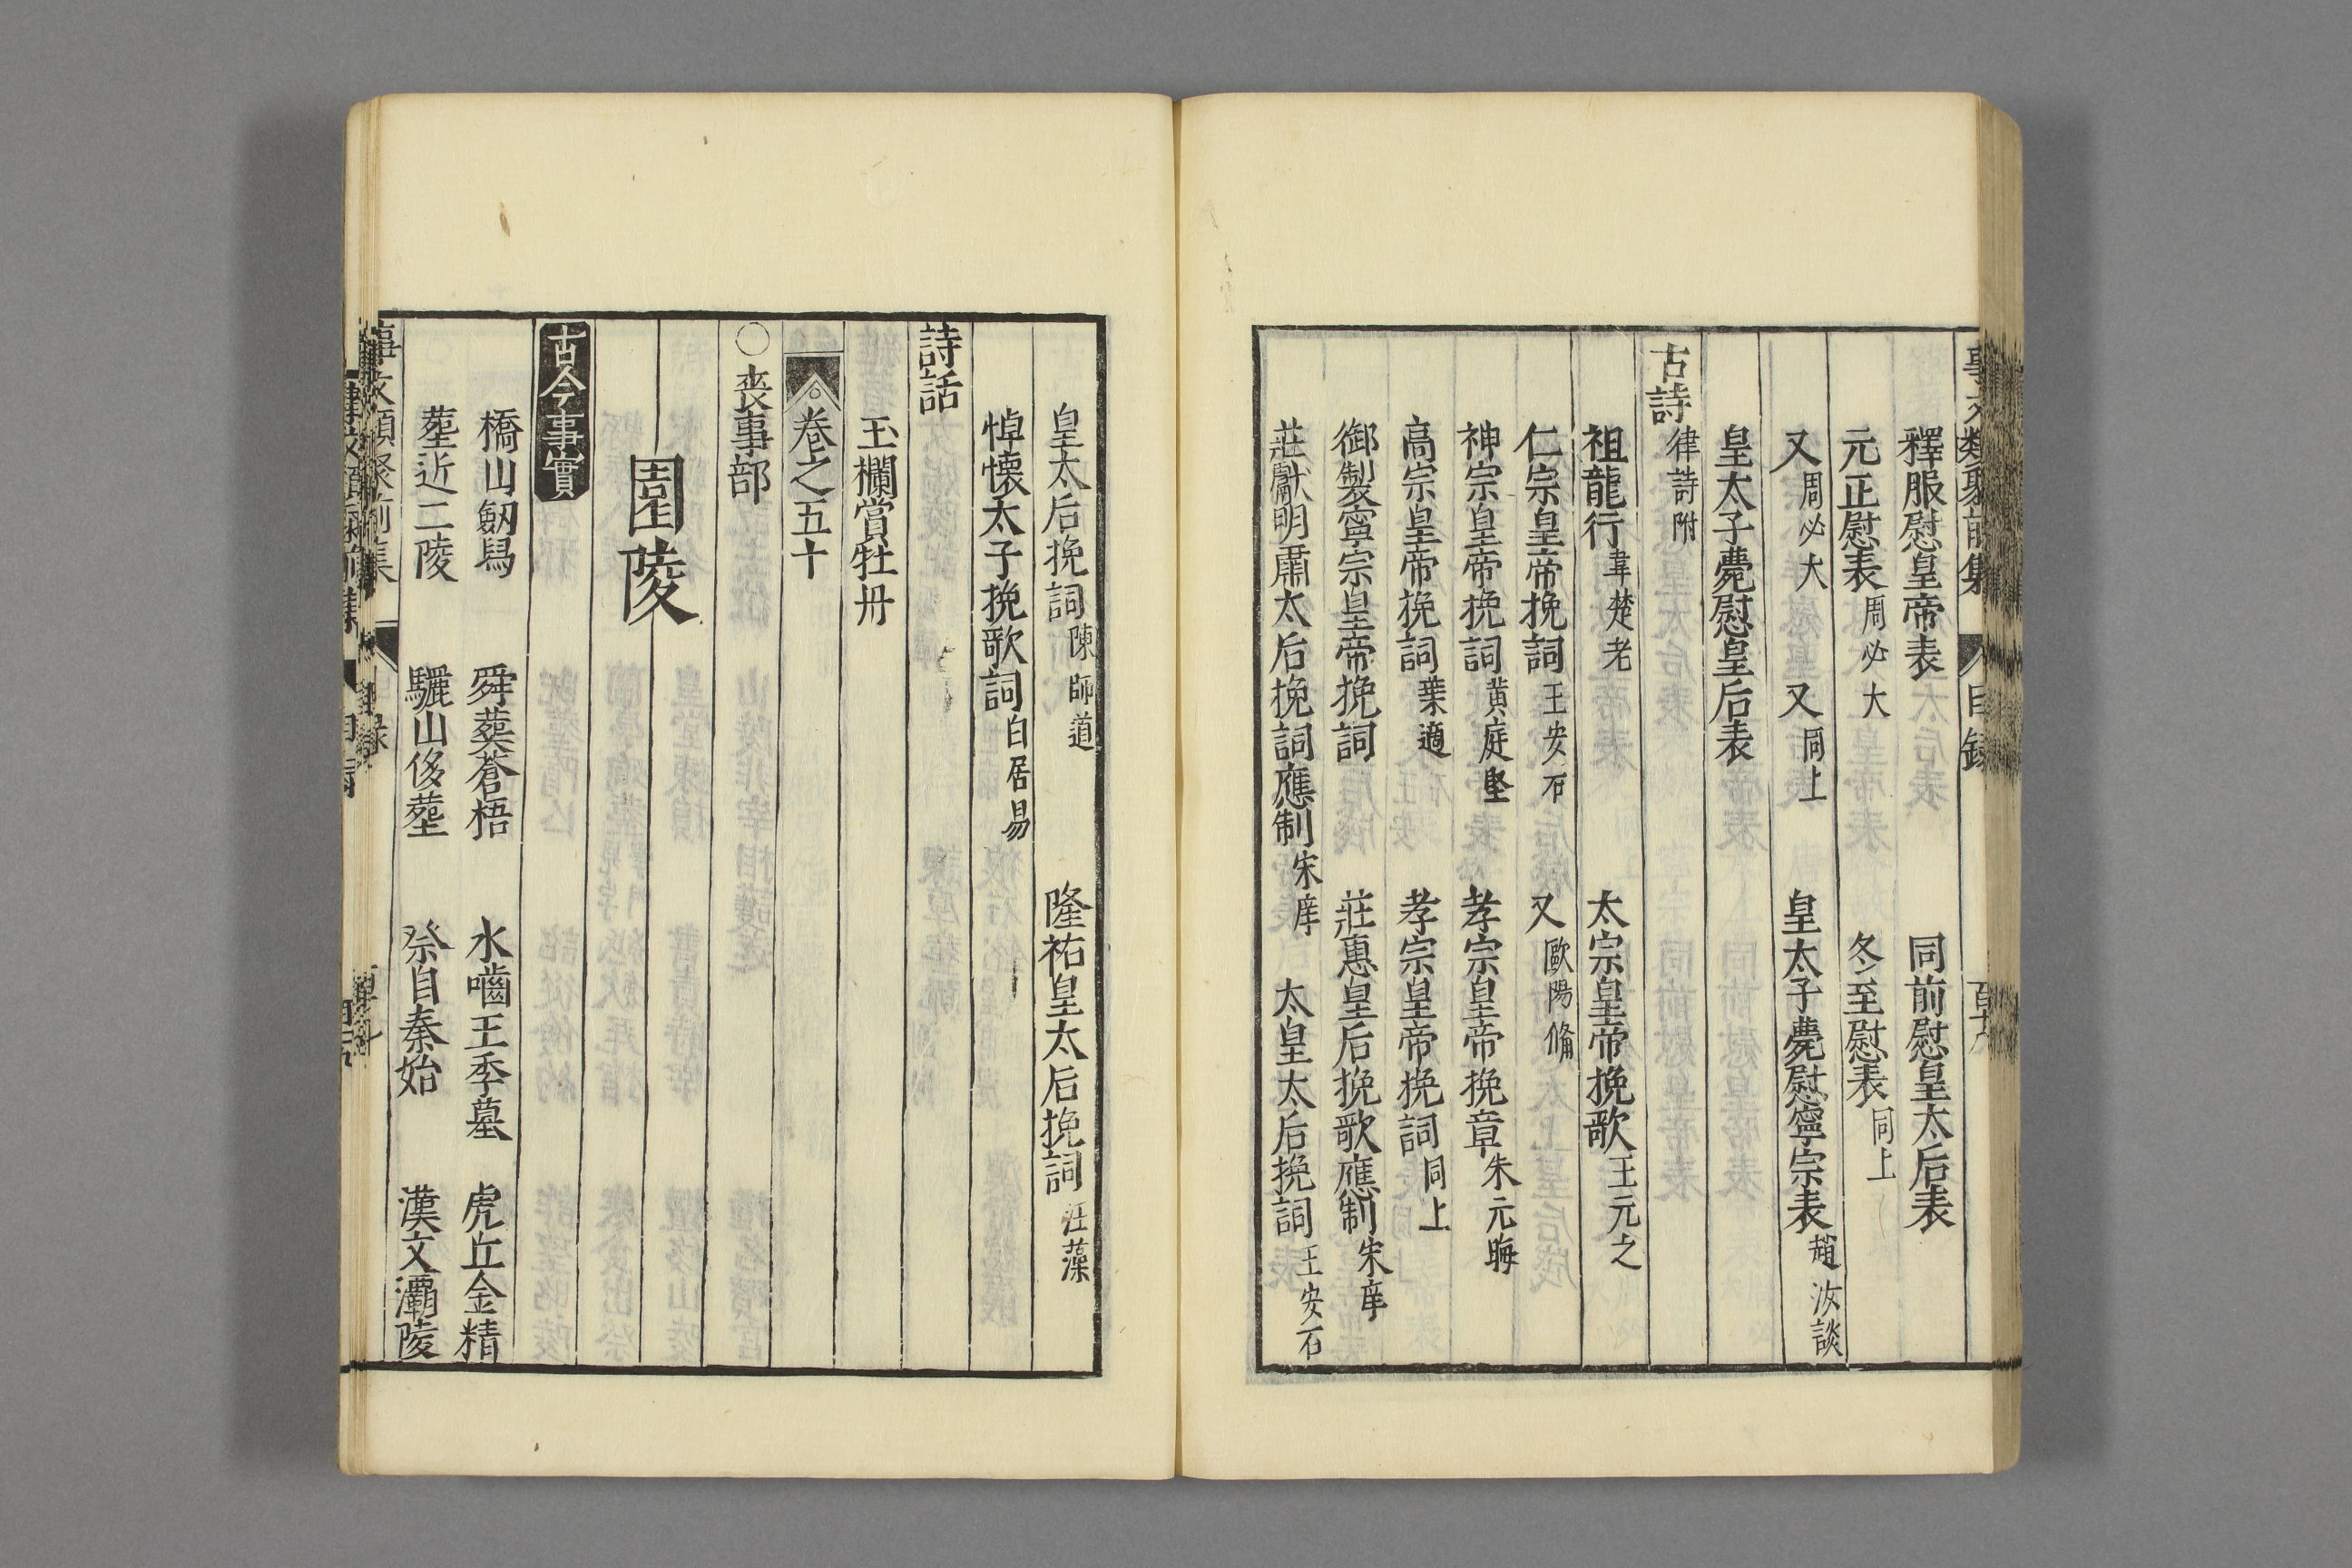 釋服慰皇帝表　同前慰皇太后表
元正慰表周必大　冬至慰表同上
又周必大　又同上　皇太子薨慰寧宗表趙汝談
皇太子薨慰皇后表
古詩律詩附
祖龍行韋楚老　太宗皇帝挽歌王元之
仁宗皇帝挽詞王安石　又歐陽脩
神宗皇帝挽詞黄庭堅　孝宗皇帝挽章朱元晦
高宗皇帝挽詞葉適　孝宗皇帝挽詞同上
御製寧宗皇帝挽詞　莊惠皇后挽歌應制宋庠
莊獻明肅太后挽詞應制宋庠　太皇太后挽詞王安石
皇太后挽詞陳師道　隆祐皇太后挽詞汪藻
悼懷太子挽歌詞白居易
詩話
玉欄賞牡丹
卷之五十
○喪事部
園陵
古今事實
橋山劔舄　舜葬蒼梧　水嚙王季墓　虎丘金精
塟近二陵　驪山侈塟　祭自秦始　漢文灞陵
事文類聚前集　目録